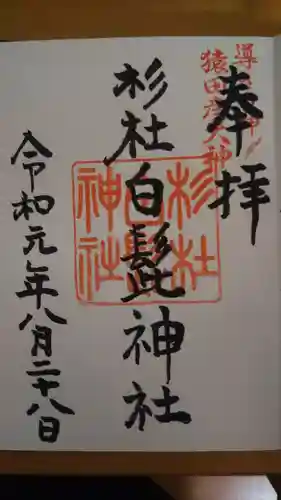 導きの神!!
猿田彦大神
奉拝
杉社白髭神社
杉社
白髭
神社
令和元年八月二十八日